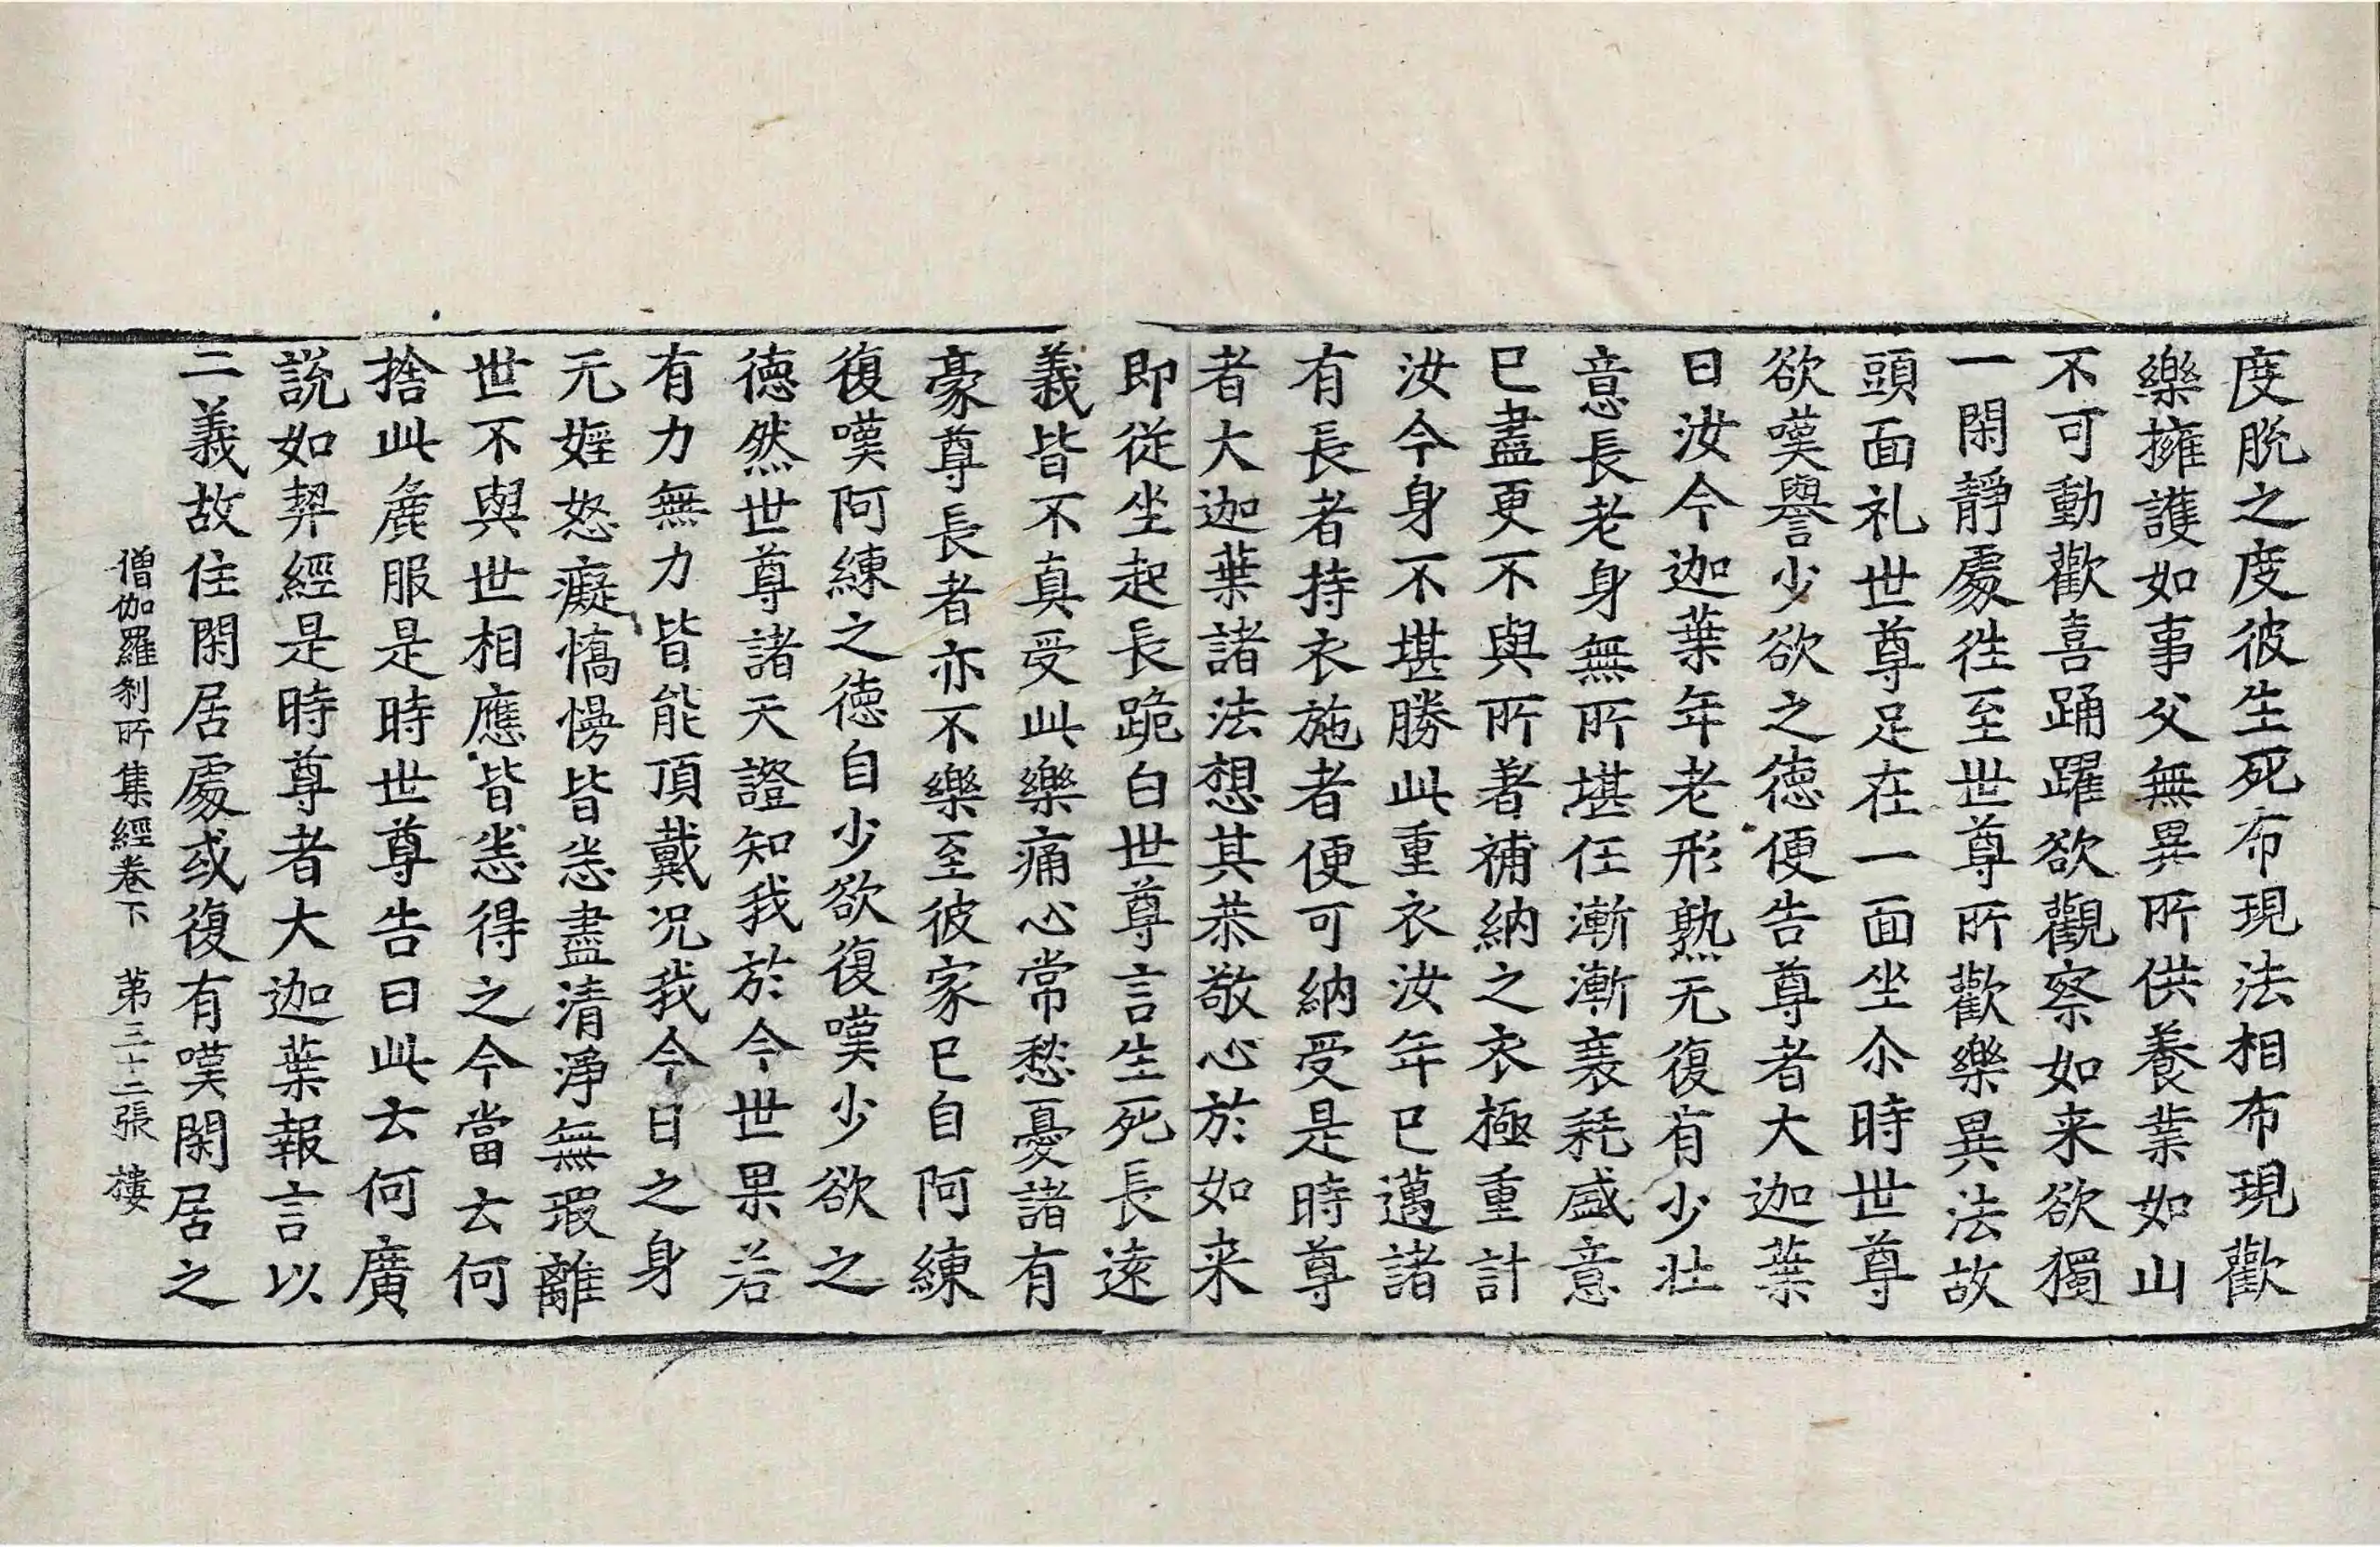 度脫之度彼生死布現法相布現歡
樂擁護如事父無異所供養業如山
不可動歡喜踊躍欲觀察如来欲獨
一閑靜處徃至世尊所歡樂異法故
頭面礼世尊足在一面坐尒時世尊
欲嘆譽少欲之德便告尊者大迦葉
日汝今迦葉年老形熟无復有少壯
意長老身無所堪任漸漸衰耗盛意
已盡更不與所著補納之衣極重計
汝今身不堪勝此重衣汝年已邁諸
有長者持衣施者便可納受是時尊
者大迦葉諸法想其恭敬心於如来
即從坐起長跪白世尊言生死長遠
義皆不真受此樂痛心常愁憂諸有
豪尊長者亦不樂至彼家已自阿練
復嘆阿練之德自少欲復嘆少欲之
德然世尊諸天證知我於今世果若
有力無力皆能頂戴况我今日之身
元婬怒癡憍慢皆悉盡清淨無瑕離
世不與世相應皆悉得之今當云何
捨此麁服是時世尊告曰此云何廣
說如契經是時尊者大迦葉報言以
二義故住閑居處或復有嘆閑居之
僧伽羅剎所集經卷下 苐三十二張 樓